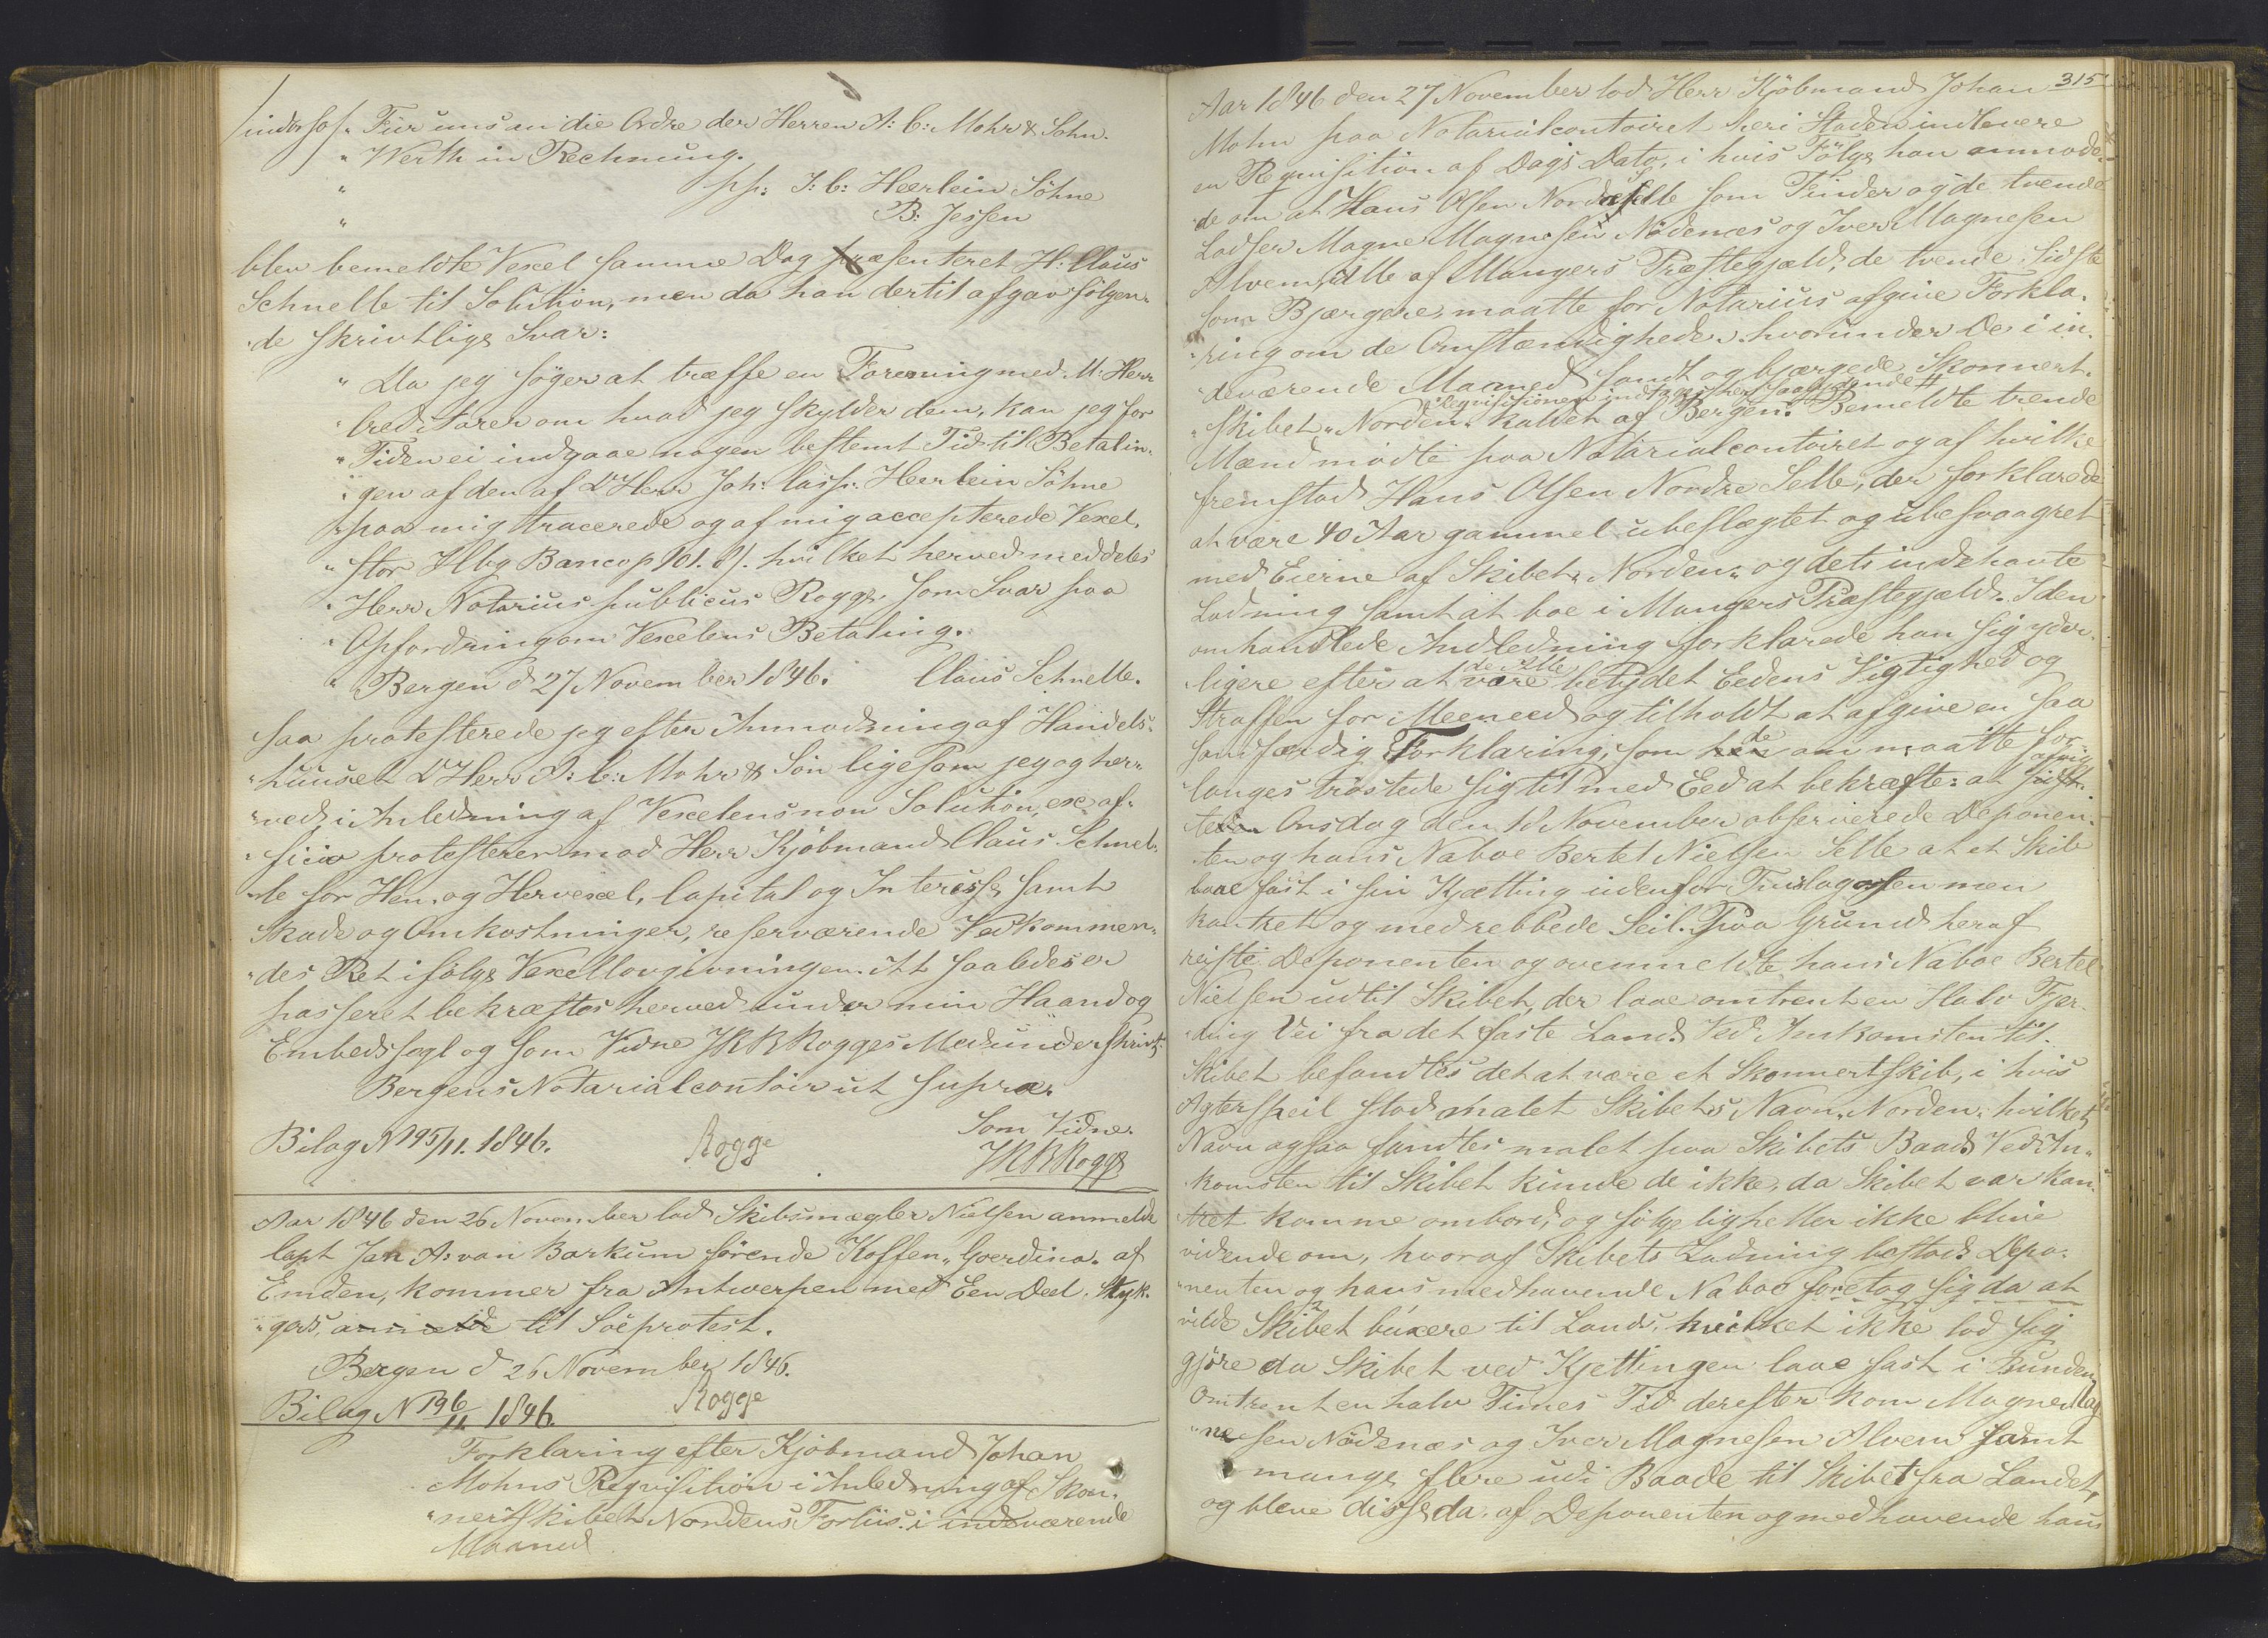 indorsos. Für uns an die Ordre der Herren A: C: Mohr & Sohn.
" Werth in Rechnung.
" pp: J: C: Heerlein Söhne
" B: Jessen
blev bemeldte Vexel samme Dag præsenteret H: Claus
Schnelle til Solution, men da han dertil afgav følgen-
de skrivtlige Svar:
" Da jeg søger at træffe en Forening med M: Herr
" Creditorer om hvad jeg skylder dem, kan jeg for
" Tiden ei indgaae nogen bestemt Tid til Betalin-
" gen af den af D'Herr Joh: Casp: Heerlein Söhne
" paa mig tracerede og af mig accepterede Vexel,
" stor Hbg Banco 901. 8/. hvilket herved meddeles
" Herr Notarius publicus Rogge som Svar paa
" Opfordring om Vexelens Betaling.
" Bergen d 27 November 1846. Claus Schnelle.
saa protesterede jeg efter Anmodning af Handels-
huuset D'Herr A: C: Mohr & Søn ligesom jeg og her-
ved i Anledning af Vexelens non Solution, ex of-
ficio protesterer mod Herr Kjöbmand Claus Schnel-
le for Hen- og Hervexel, Capital og Interesse samt
Skade og Omkostninger, reserverende Vedkommen-
des Ret ifølge Vexellovgivningen. At saaledes er
passeret bekræftes herved under min Haand og
Embedssegl og som Vidne JKB Rogges Medunderskrivt,
Bergens Notarialcontoir ut supra.
Bilag N 195/11. 1846. Rogge Som Vidne.
JKB Rogge
Aar 1846 den 26 November lod Skibsmægler Nielsen anmelde
Capt Jan A: van Barkum førende Koffen "Goerdina" af
Emden, kommer fra Antwerpen med Een Deel Styk-
gods, anmelde til Söeprotest.
Bergen d 26 November 1846.
Bilag N 196/11 1846. Rogge
Forklaring efter Kjöbmand Johan
Mohns Reqvisition i Anledning af Skon-
nertskibet Nordens Forliis i indeværende
Maaned
315
Aar 1846 den 27 November lod Herr Kjöbmand Johan
Mohn paa Notarialcontoiret her i Staden indlevere
en Reqvisition af Dags Dato, i hvis Følge han anmode-
de om at Hans Olsen Nordre Selle som Finder og de tvende
Lodser Magne Magnesen Nödenæs og Iver Magnesen
Alvem, alle af Mangers Præstegjæld, de tvende sidste
som Bjergere, maatte for Notarius afgive Forkla-
ring om de Omstændigheder, hvorunder De i in-
deværende Maaned fandt og bjærgede Skonnert-
Reqvisitionen indtages her saalydende #
skibet "Norden" kaldet af Bergen. Bemeldte trende
Mænd mödte paa Notarialcontoiret og af hvilke
fremstod Hans Olsen Nordre Selle, der forklarede
at være 40 Aar gammel ubeslægtet og ubesvogret
med Eierne af Skibet "Norden" og dets indehavte
Ladning samt at boe i Mangers Præstegjæld. I den
omhandlede Anledning forklarede han sig yder-
de Alle
ligere efter at være betydet Eedens Vigtighed og
Straffen for Meeneed og tilholdt at afgive en saa
de
sandfærdig Forklaring, som han om maatte for-
langes tröstede sig til med Eed at bekræfte: at sidst-
afvigte
leden Onsdag den 18 November observerede Deponen-
ten og hans Naboe Bertel Nielsen Selle at et Skib
laae fast i sin Kjætting udenfor men
kantret og med rebbede Seil. Paa Grund heraf
reiste Deponenten og ovenmeldte hans Naboe Bertel
Nielsen ud til Skibet, der laae omtrent en Halv Fjer-
ding Vei fra det faste Land. Ved Ankomsten til
Skibet befandtes det at være et Skonnertskib, i hvis
Agterspeil stod malet Skibets Navn "Norden" hvilket
Navn ogsaa fandtes malet paa Skibets Baad. Ved An-
komsten til Skibet kunde de ikke, da Skibet var kan-
tret komme ombord, og følgelig heller ikke blive
vidende om, hvoraf Skibets Ladning bestod. Depo-
nenten og hans medhavende Naboe foretog sig da at
vilde Skibet buxere til Lands, hvilket ikke lod sig
gjöre da Skibet ved Kjettingen laae fast i Bunden,
Omtrent en halv Times Tid derefter kom Magne Mag-
nesen Nödenæs og Iver Magnesen Alvem samt
mange flere udi Baade til Skibet fra Landet,
og bleve disse da af Deponenten og medhavende hans